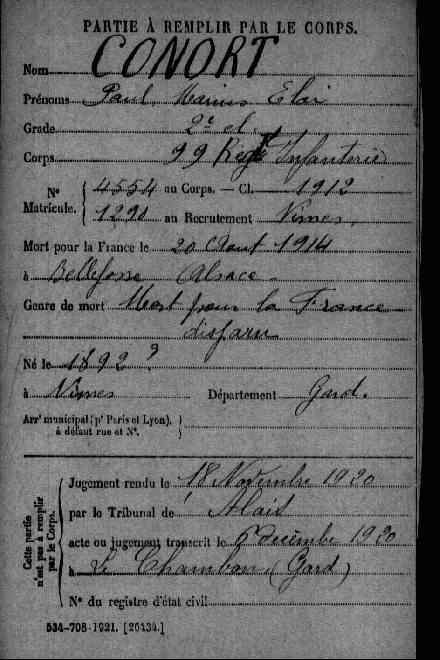 PARTIE À REMPLIR PAR LE CORPS.
Nom CONORT
Prénoms Paul Marius Eloi
Grade 2e cl
Corps 99 Regt Infanterie
N° Matricule. { 4554 au Corps. — Cl. 1912
1290 au Recrutement Nimes
Mort pour la France le 20 Aout 1914
à Bellefosse Alsace
Genre de mort Mort pour la France
disparu
Né le 1892 ?
à Nimes Département Gard.
Arrt municipal (pr Paris et Lyon), à défaut rue et N°. }
Cette partie n'est pas à remplir par le Corps.
Jugement rendu le 18 Novembre 1920
par le Tribunal de Alais
acte ou jugement transcrit le 6 décembre 1920
à Le Chambon (Gard)
N° du registre d'état civil
534-708-1921. [26434.]